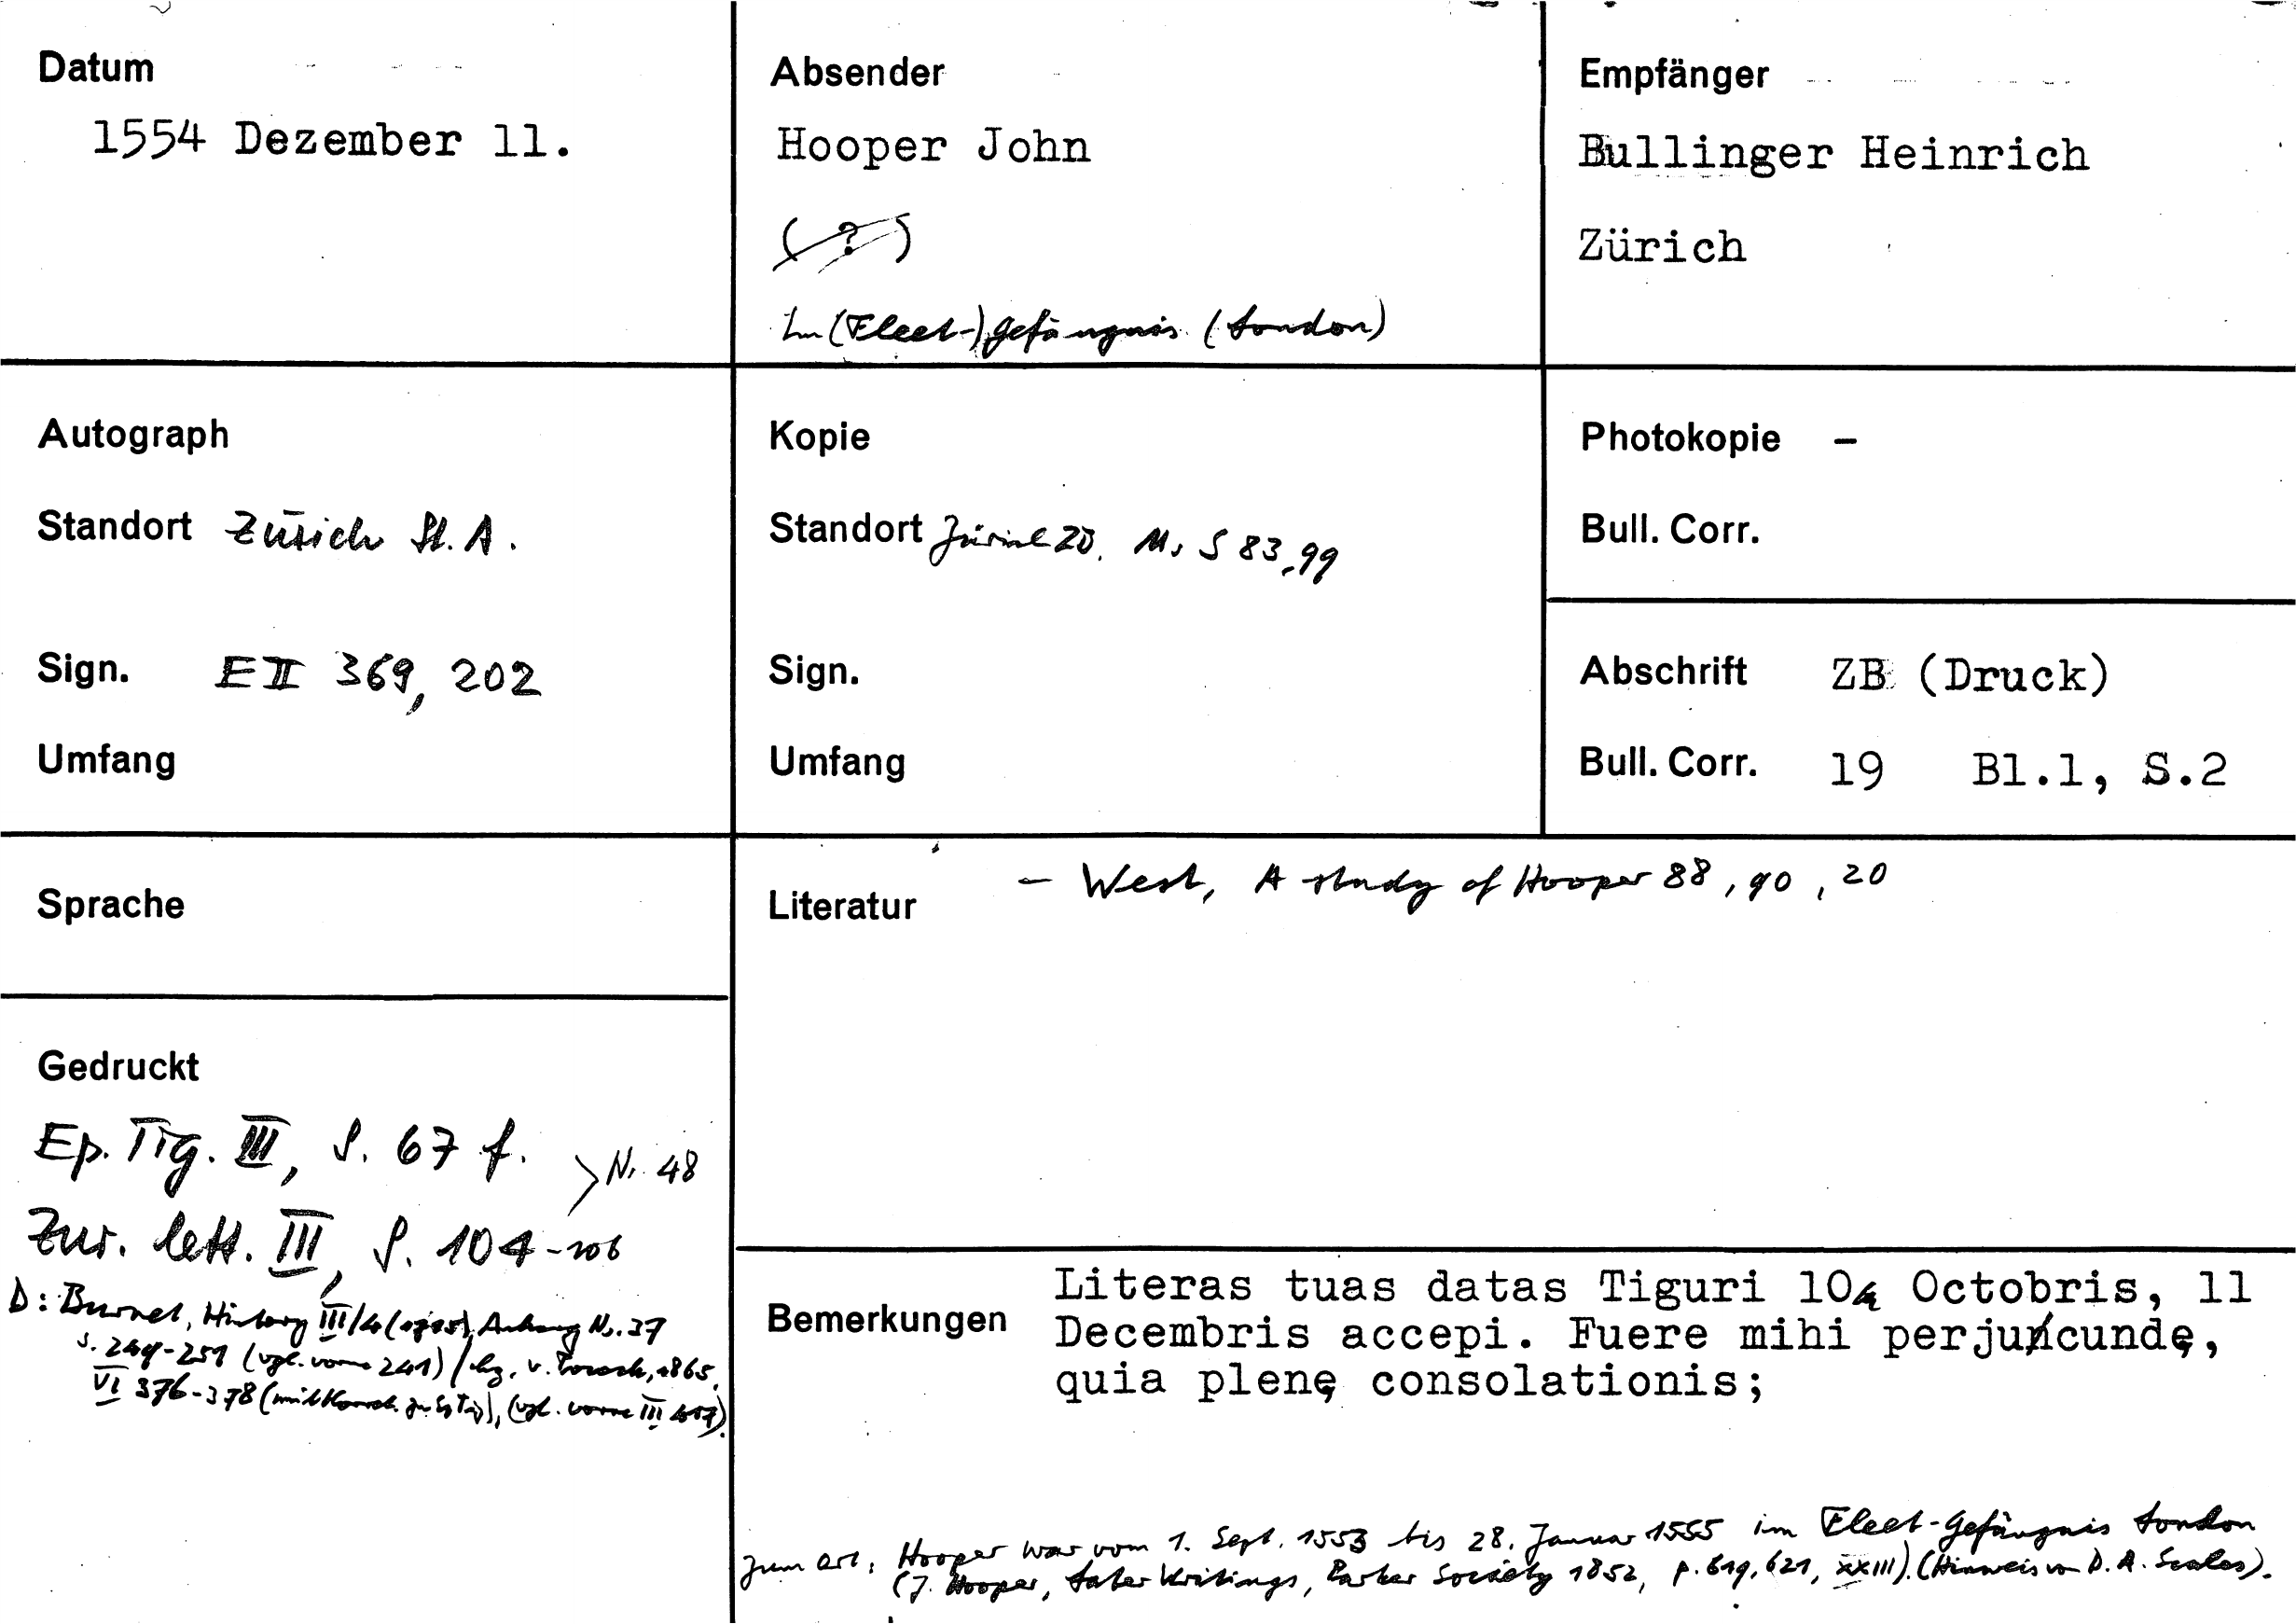 Datum
1554 Dezember 11.
Absender
Hooper John
(?)
Im (Fleet-)Gefängnis (London)
Empfänger
Bullinger Heinrich
Zürich
Autograph
Standort Zürich St. A.
Sign. E II 369, 202
Umfang
Kopie
Standort Zürich ZB. Ms S 83, 99
Sign.
Umfang
Photokopie –
Bull. Corr.
Abschrift ZB (Druck)
Bull. Corr. 19 Bl.1, S.2
Sprache
Literatur – West, A study of Hooper 88, 90, 20
Gedruckt
Ep. Tig. III, S. 67 f.
> Nr. 48
Zur. lett. III, S. 104-106
D: Burnet, History III/4 Anhang Nr. 37
S. 249-251 (vgl. vorne 241) / hg. v. Pocock, 1865,
VI 376-378 (mit zu Ep Tig), (vgl. vorne III
Bemerkungen
Literas tuas datas Tiguri 10. Octobris, 11
Decembris accepi. Fuere mihi perjucundę,
quia plenę consolationis;
zum Ort: Hooper war vom 1. Sept. 1553 bis 28. Januar 1555 im Fleet-Gefängnis London
(J. Hooper, Later Writings, Parker Society 1852, p. 619, 621, XXIII). (Hinweis von D. A. Scales).